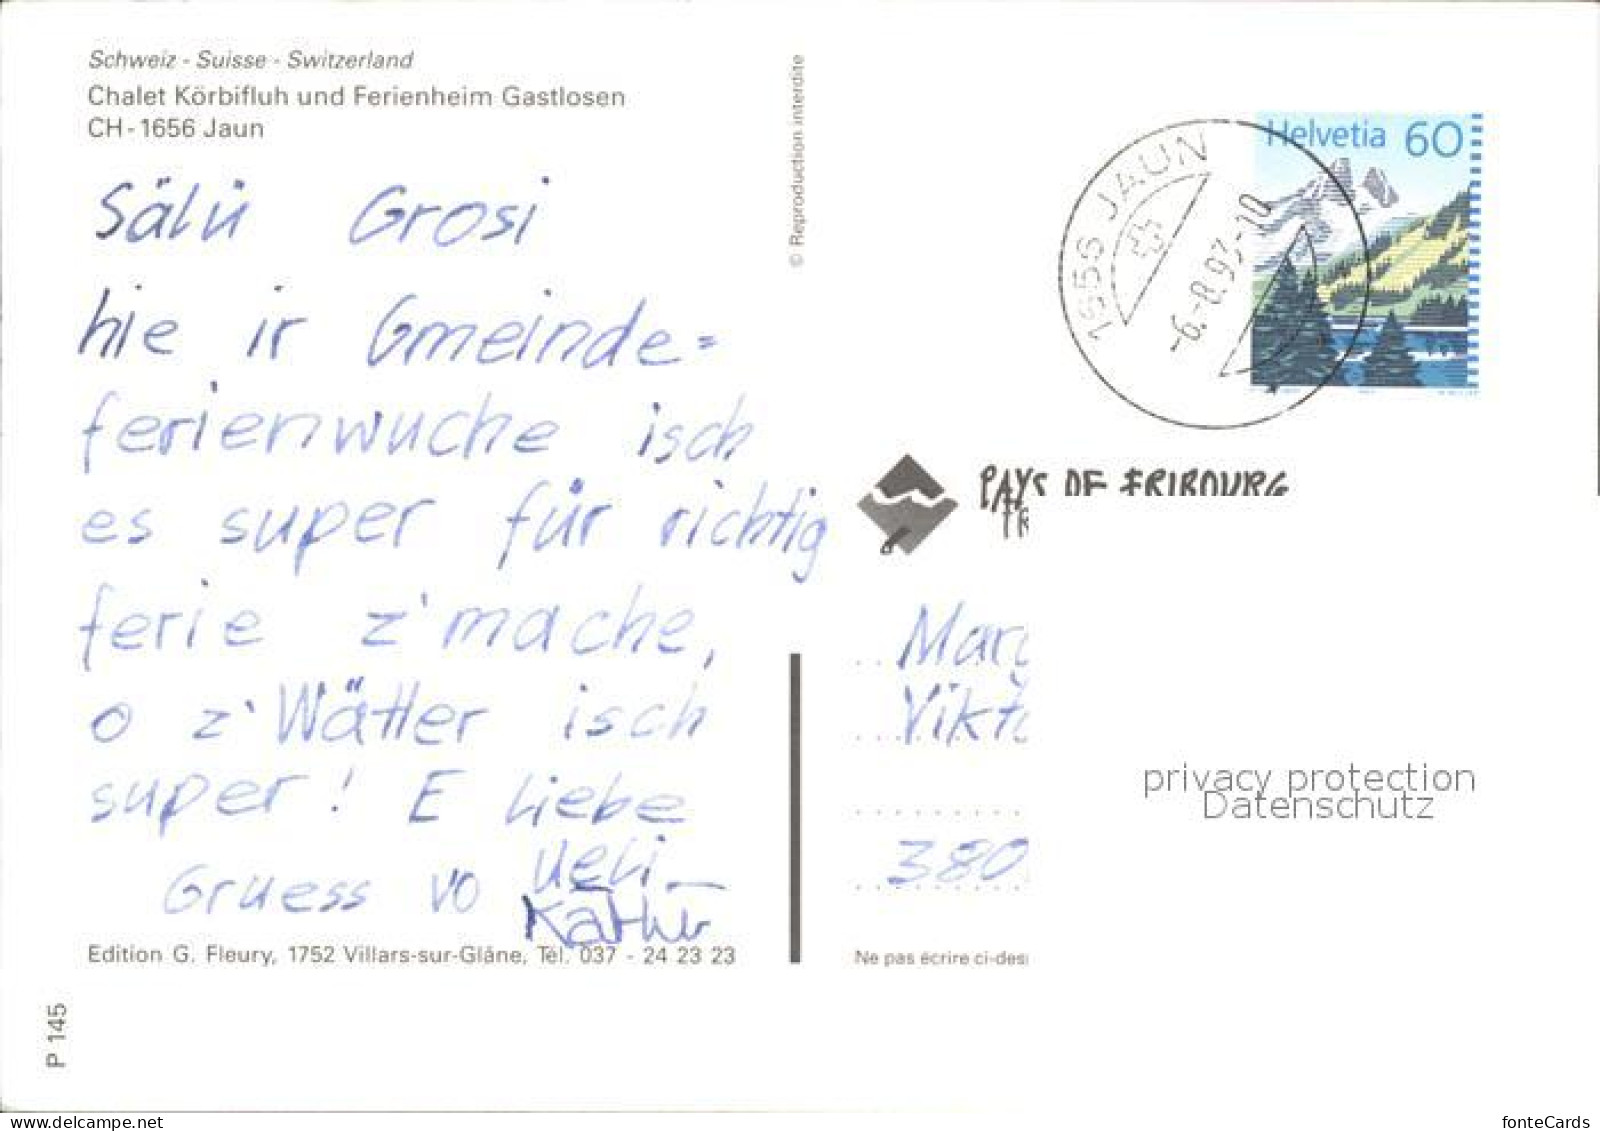 Schweiz - Suisse - Switzerland
Chalet Körbifluh und Ferienheim Gastlosen
CH-1656 Jaun
Sälü Grosi
hie ir Gmeinde=
ferienwuche isch
es super für richtig
ferie z'mache,
o z'Wätter isch
super! E liebe
Gruess vo Ueli
Edition G. Fleury, 1752 Villars-sur-Glâne, Tél. 037 - 24 23 23
P 145
© Reproduction interdite
Helvetia 60
1656 JAUN
-6.-8.93.-10
PAYS DE FRIBOURG
Mar
Vikt
380
Ne pas écrire ci-des
privacy protection
Datenschutz
www.delcampe.net
fonteCards